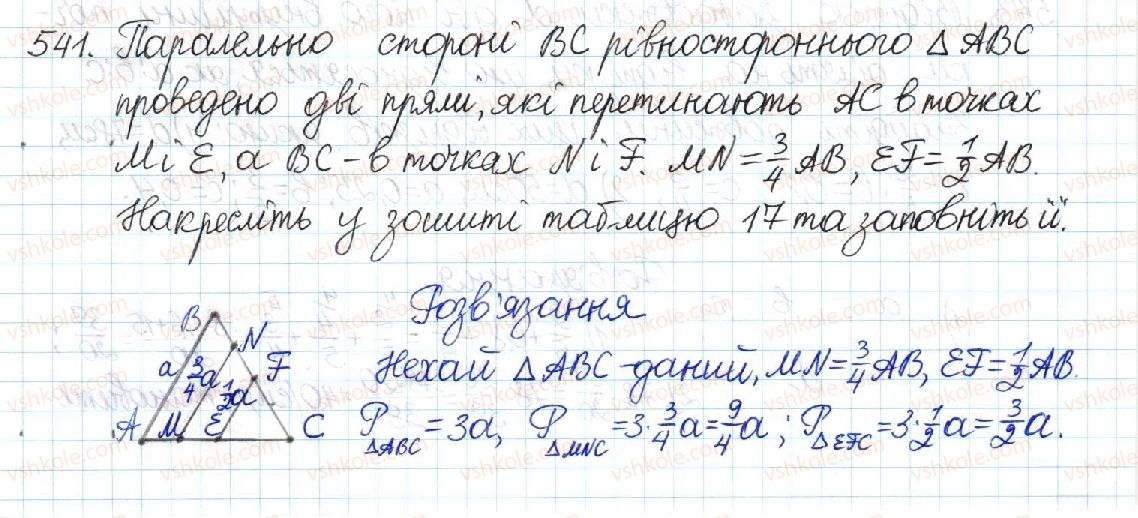 541. Паралельно стороні BC рівностороннього △ ABC
проведено дві прямі, які перетинають AC в точках
M і E, а BC - в точках N і F. MN = 3/4 AB, EF = 1/2 AB.
Накресліть у зошиті таблицю 17 та заповніть її.
Розв'язання
B N F
a 3/4 a 1/2 a
A M E C
Нехай △ ABC - даний, MN = 3/4 AB, EF = 1/2 AB.
P△ABC = 3a, P△MNC = 3·3/4 a = 9/4 a; P△EFC = 3·1/2 a = 3/2 a.
vshkole.com